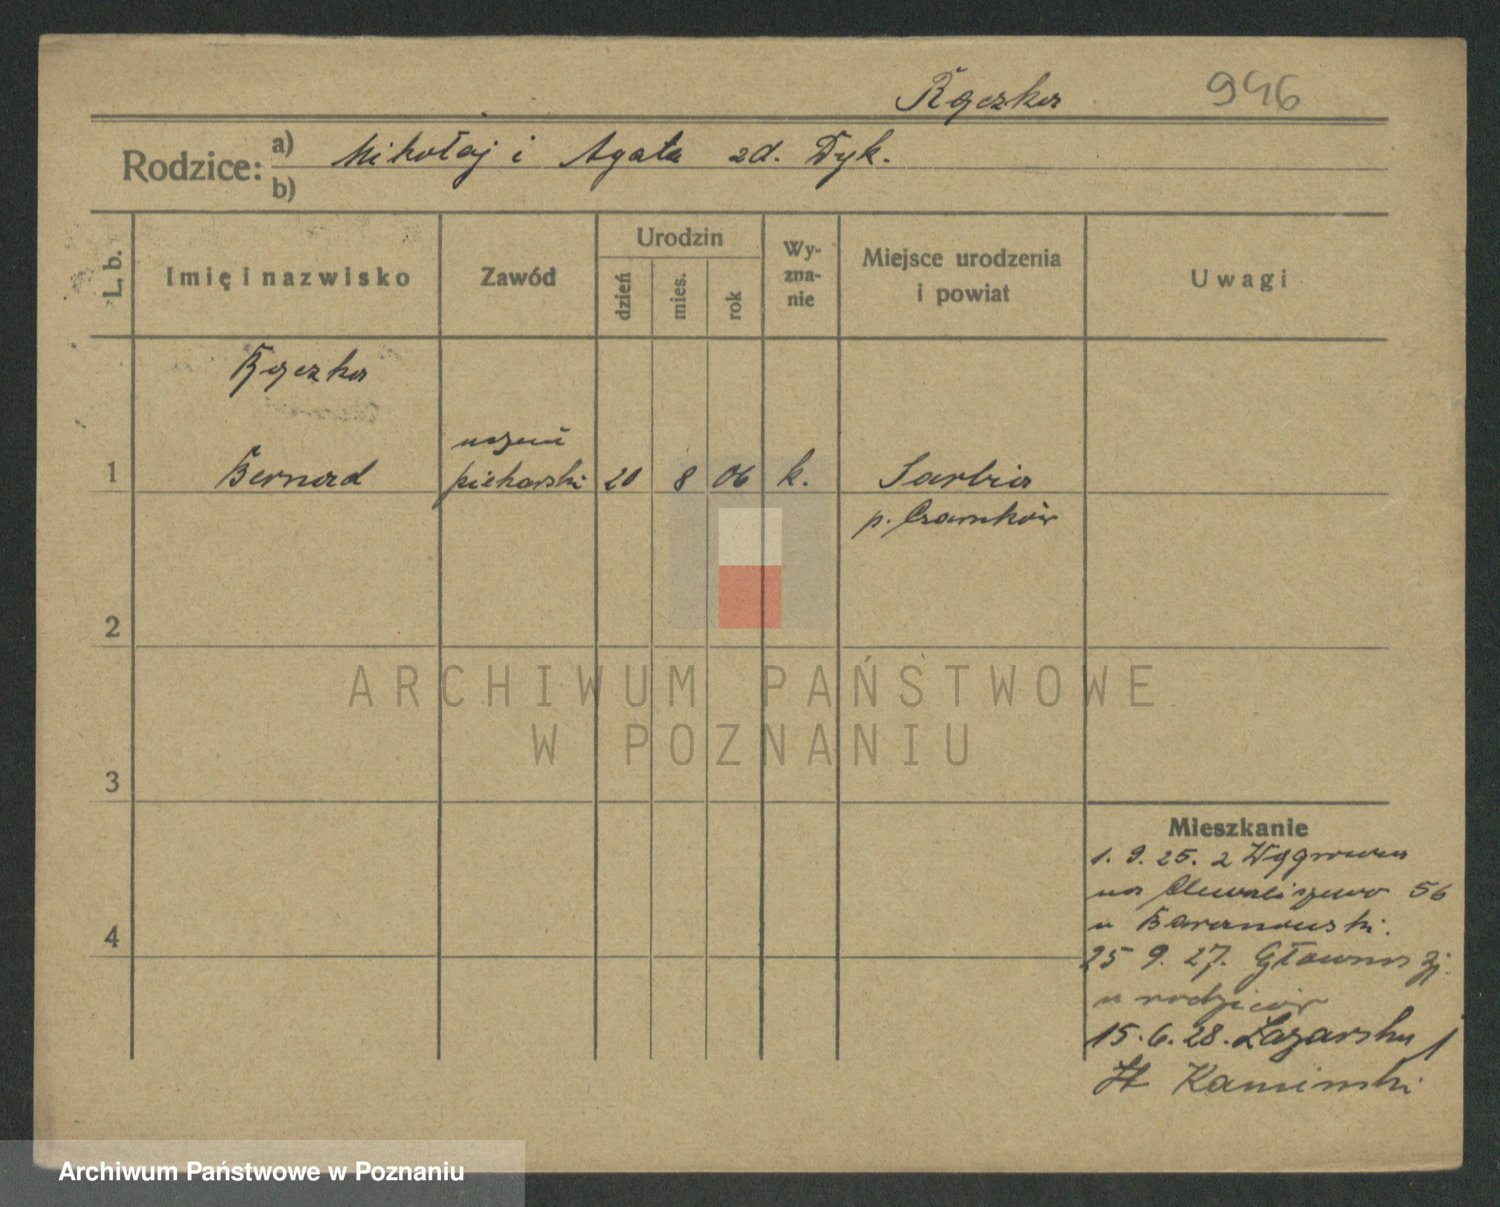 Rączka 946
Rodzice: a) Mikołaj i Agata zd. Dyk.
b)
L. b.
Imię i nazwisko
Zawód
Urodzin
dzień
mies.
rok
Wy-
zna-
nie
Miejsce urodzenia
i powiat
Uwagi
Rączka
uczeń
1 Bernard piekarski 20 8 06 k. Sarbia
p. Czarnków
2
3
4
ARCHIWUM PAŃSTWOWE
W POZNANIU
Mieszkanie
1. 9. 25. z Wągrowca
na Chwaliszewo 56
u Baranowski.
25 9. 27. Główna
u rodziców
15. 6. 28. Łazarska 1
Kaminski
Archiwum Państwowe w Poznaniu